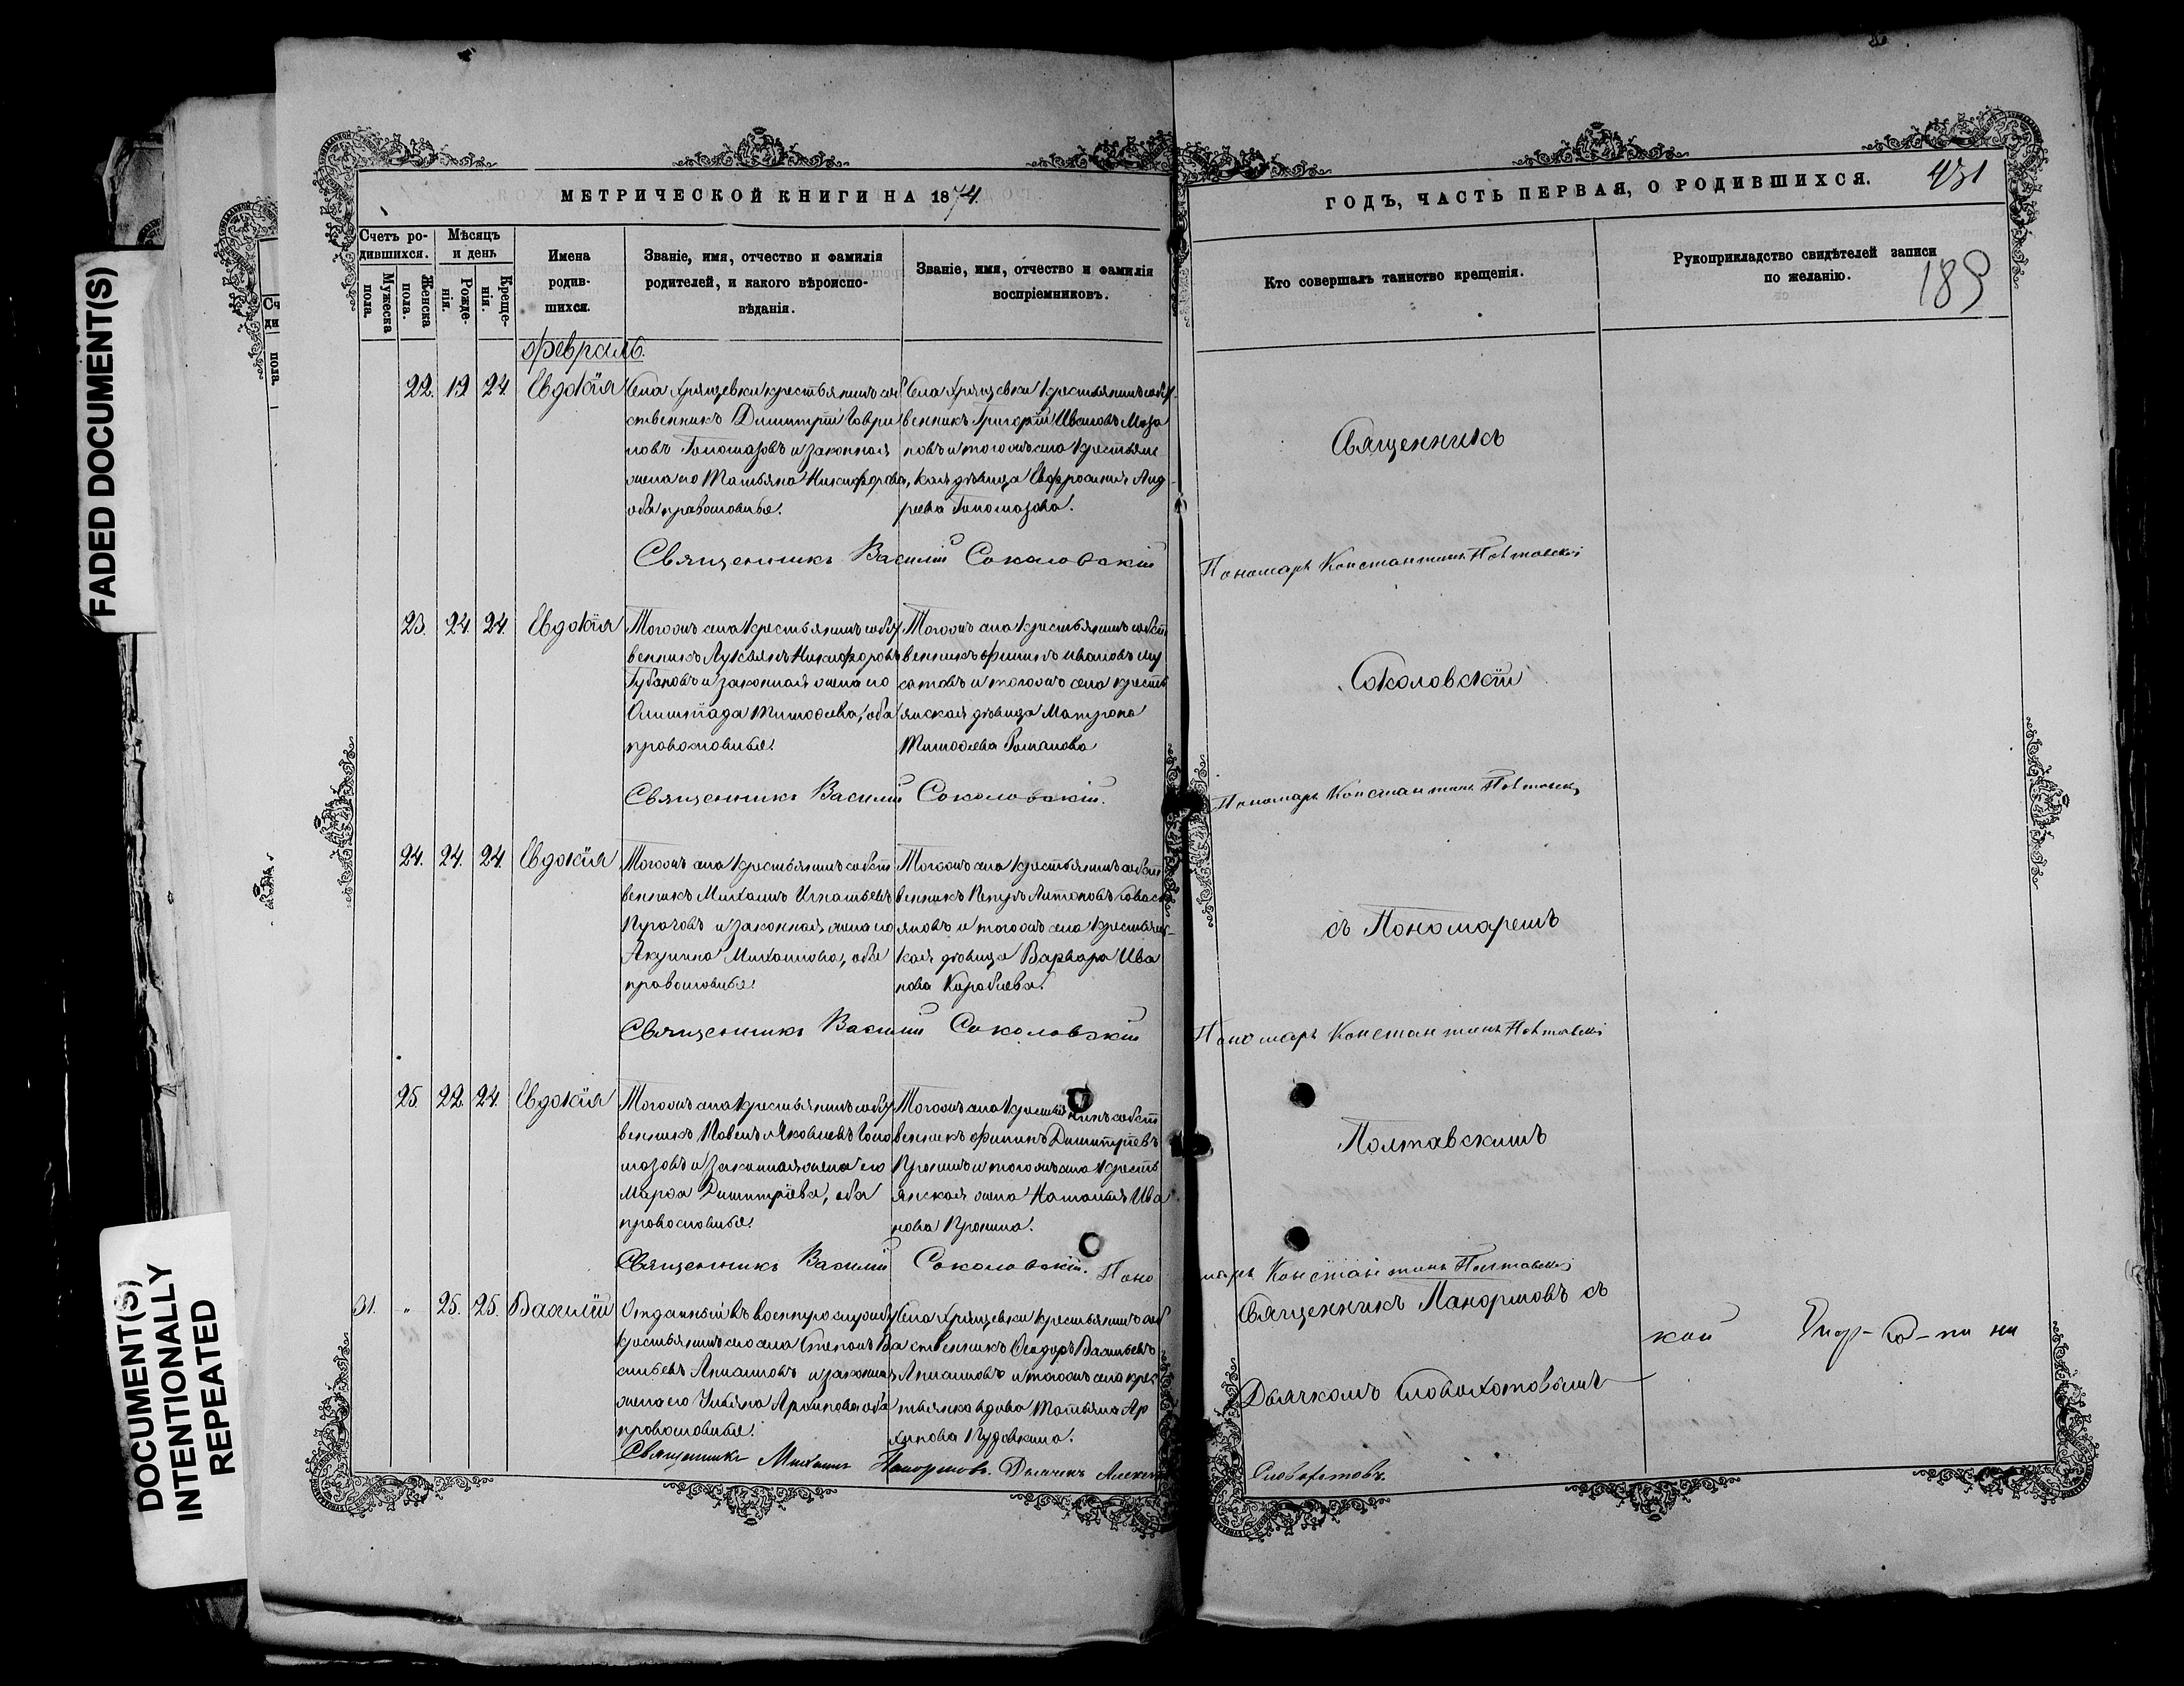 FADED DOCUMENT(S)
DOCUMENT(S)
INTENTIONALLY
REPEATED
МЕТРИЧЕСКОЙ КНИГИ НА 1874
ГОДЪ, ЧАСТЬ ПЕРВАЯ, О РОДИВШИХСЯ.
431
189
Счетъ ро-
дившихся.
Мужеска
пола.
Женска
пола.
Мѣсяцъ
и день
Рожде-
нія.
Креще-
нія.
Имена
родив-
шихся.
Званіе, имя, отчество и фамилія
родителей, и какого вѣроиспо-
вѣданія.
Званіе, имя, отчество и фамилія
воспріемниковъ.
Кто совершалъ таинство крещенія.
Рукоприкладство свидѣтелей записи
по желанію.
февраль.
22. 19 24. Евдокія
Села Хрящевки крестьянинъ соб
ственникъ Димитрій Гаври
ловъ Голомазовъ и законная
жена его Татьяна Никифорова,
оба православные.
Села Хрящевки крестьянинъ собст
венникъ Григорій Ивановъ Маза
новъ и того же села крестьянс
кая дѣвица Евфросинія Анд
реева Голомазова.
Священникъ
Священникъ Василій Соколовскій
Пономарь Константинъ Полтавскій
23. 24. 24. Евдокія
Того же села крестьянинъ собст
венникъ Лукьянъ Никифоровъ
Губановъ и законная жена его
Олимпіада Тимофеева, оба
православные.
Того же села крестьянинъ собст
венникъ Филиппъ Ивановъ
и того же села кресть
янская дѣвица Матрона
Тимофеева Романова
Соколовскій
Священникъ Василій Соколовскій.
Пономарь Константинъ
24. 24. 24. Евдокія
Того же села крестьянинъ собст
венникъ Михаилъ Игнатьевъ
и законная жена его
Акулина Михаилова, оба
православные.
Того же села крестьянинъ собст
венникъ Петръ Антоновъ
яновъ и того же села крестьянс
кая дѣвица Варвара Ива
нова
съ Пономаремъ
Священникъ Василій Соколовскій
Пономарь Константинъ Полтавскій
25. 22. 24. Евдокія
Того же села крестьянинъ собст
венникъ Павелъ Яковлевъ Голо
мазовъ и законная жена его
Марфа Димитріева, оба
православные.
Того же села крестьянинъ собст
венникъ Филипъ Димитріевъ
Пронинъ и того же села кресть
янская жена Наталья Ива
нова Пронина.
Полтавскимъ
Священникъ Василій Соколовскій. Поно
марь Константинъ Полтавскій
31. " 25. 25. Василій
Отданный въ военную службу
крестьянинъ села Степанъ Ва
сильевъ и законная
жена его Ульяна Архипова оба
православные.
Села Хрящевки крестьянинъ соб
ственникъ Феодоръ Васильевъ
и того же села крес
тьянка вдова Татьяна Ар
хипова
Священникъ Панормовъ съ
Дьячкомъ Словохотовымъ
Священникъ Михаилъ Панормовъ. Дьячекъ Алексѣй
Словохотовъ.